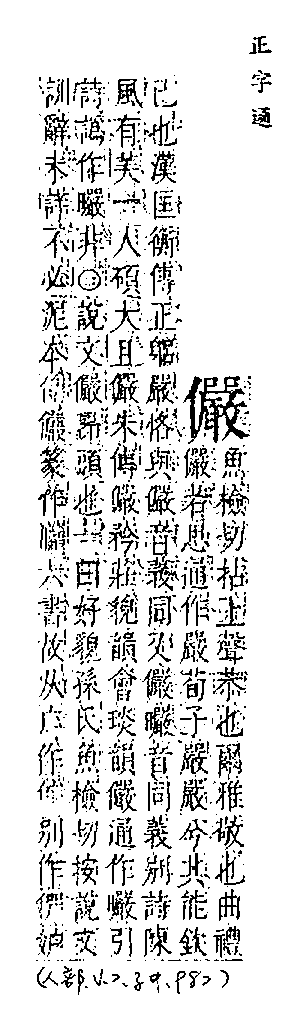 正字通
儼
魚檢切拈上聲恭也爾雅敬也曲禮
儼若思通作嚴荀子嚴嚴兮其能敬
己也漢匡衡傳正躬嚴恪與儼音義同又儼曮音同義別詩陳
風有美一人碩大且儼朱傳儼矜莊貌韻會琰韻儼通作曮引
詩譌作曮非○說文儼昂頭也一曰好貌孫氏魚檢切按說文
訓辭未詳不必泥本作儼篆作 六書故从 作 別作